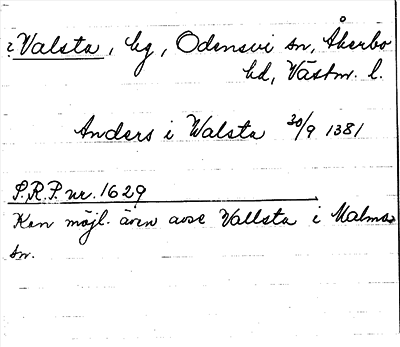 ? Valsta, by, Odensvi sn, Åkerbo
hd, Västm. l.
Anders i Walsta 30/9 1381
S.R.P. nr. 1629
Kan möjl. även avse Vallsta i Malma
sn.